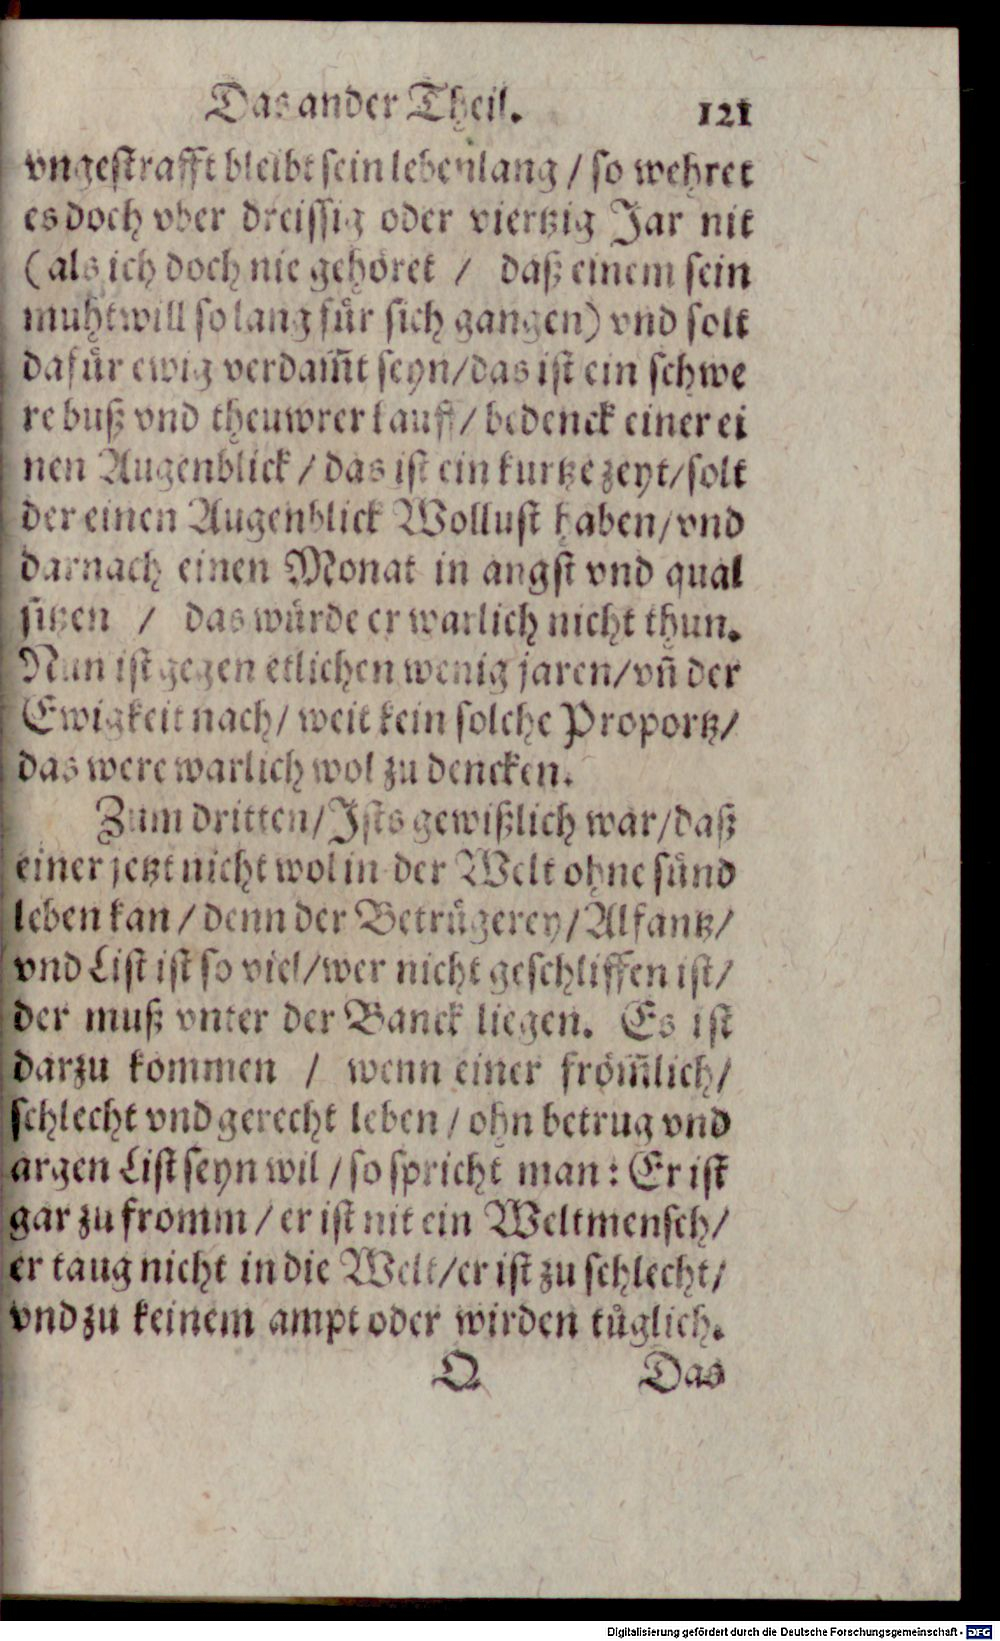 Das ander Theil. 121
vngestrafft bleibt sein lebenlang / so wehret
es doch vber dreissig oder viertzig Jar nit
(als ich doch nie gehöret / daß einem sein
muhtwill so lang für sich gangen) vnd solt
dafür ewig verdam̄t seyn/das ist ein schwe
re buß vnd theuwrer kauff / bedenck einer ei
nen Augenblick / das ist ein kurtze zeyt/solt
der einen Augenblick Wollust haben/vnd
darnach einen Monat in angst vnd qual
sitzen / das würde er warlich nicht thun.
Nun ist gegen etlichen wenig jaren/vn̄ der
Ewigkeit nach/ weit kein solche Proportz/
das were warlich wol zu dencken.
Zum dritten/Ists gewißlich war/daß
einer jetzt nicht wol in der Welt ohne sünd
leben kan / denn der Betrügerey/Alfantz/
vnd List ist so viel/wer nicht geschliffen ist/
der muß vnter der Banck liegen. Es ist
darzu kommen / wenn einer fröm̄lich/
schlecht vnd gerecht leben / ohn betrug vnd
argen List seyn wil / so spricht man: Er ist
gar zu fromm / er ist nit ein Weltmensch/
er taug nicht in die Welt/er ist zu schlecht/
vnd zu keinem ampt oder wirden tüglich.
Q Das
Digitalisierung gefördert durch die Deutsche Forschungsgemeinschaft - DFG